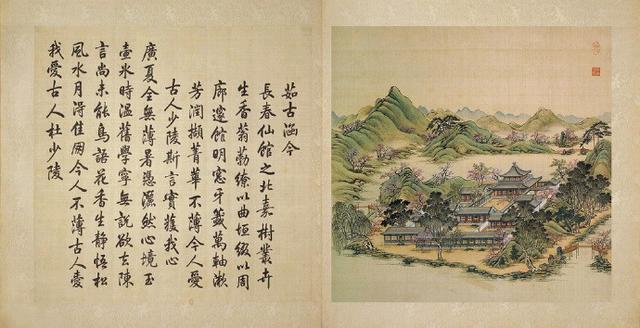 茹古涵今
長春仙館之北嘉樹叢卉
生香蓊葧繚以曲垣綴以周
廊邃館明窓牙籤萬軸漱
芳潤擷菁華不薄今人愛
古人少陵斯言實獲我心
廣夏全無薄暑憑灑然心境玉
壺氷時温舊學寧無說欲去陳
言尚未能鳥語花香生靜悟松
風水月得佳朋今人不薄古人愛
我愛古人杜少陵